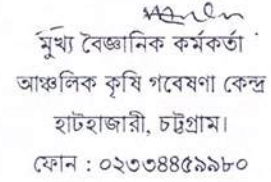 মুখ্য বৈজ্ঞানিক কর্মকর্তা
আঞ্চলিক কৃষি গবেষণা কেন্দ্র
হাটহাজারী, চট্টগ্রাম।
ফোন : ০২৩৩৪৪৫৯৯৮০